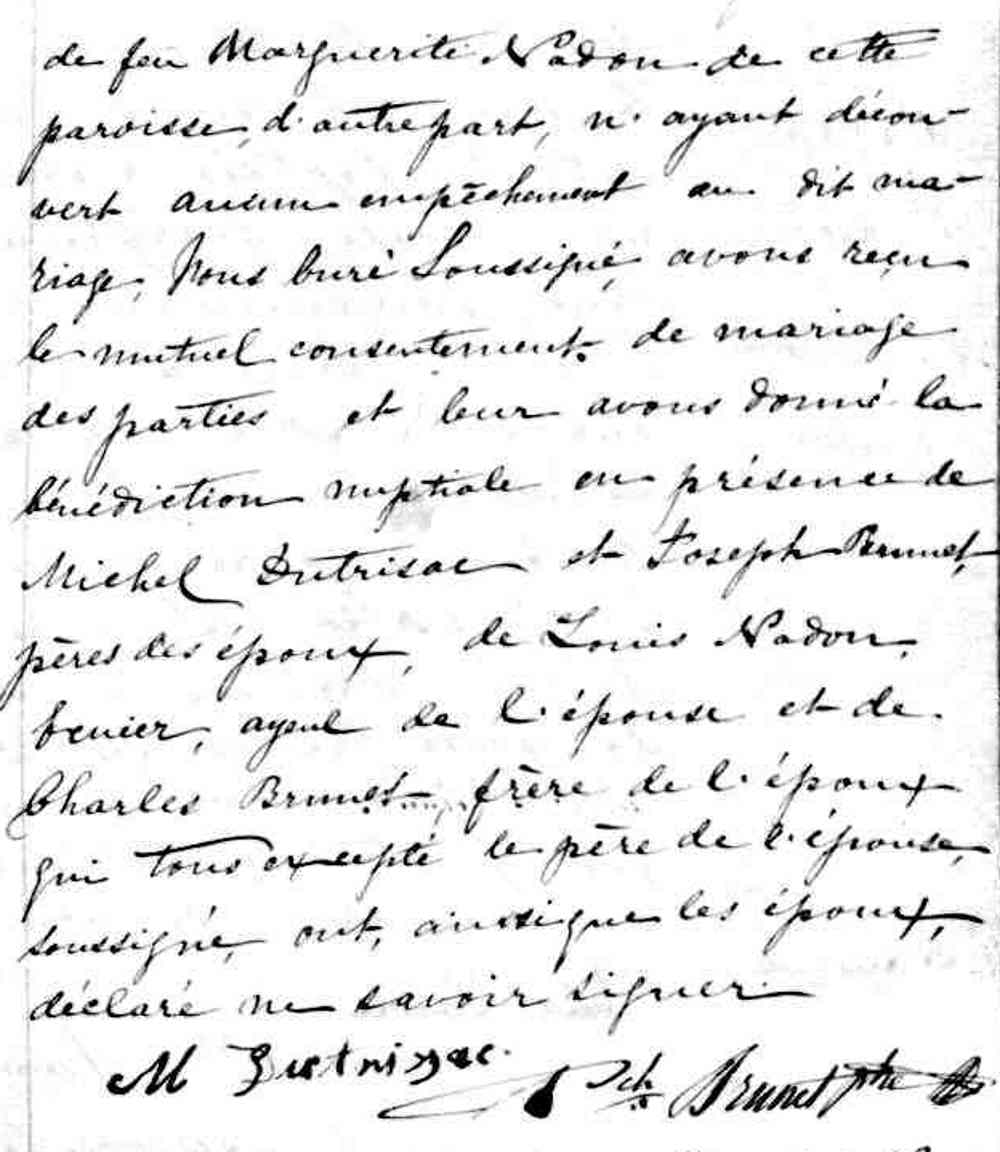 de feu Marguerite Nadon de cette
paroisse, d'autre part, n'ayant décou-
vert aucun empêchement au dit ma-
riage, Nous Curé Soussigné, avons reçu
le mutuel consentement de mariage
des parties et leur avons donné la
bénédiction nuptiale en présence de
Michel Dutrisac et Joseph Brunet,
pères des époux, de Louis Nadon,
fermier, ayeul de l'épouse et de
Charles Brunet frère de l'époux
qui tous excepté le père de l'épouse,
soussigné, ont, ainsi que les époux,
déclaré ne savoir signer
M Dutrissac
Brunet ptre